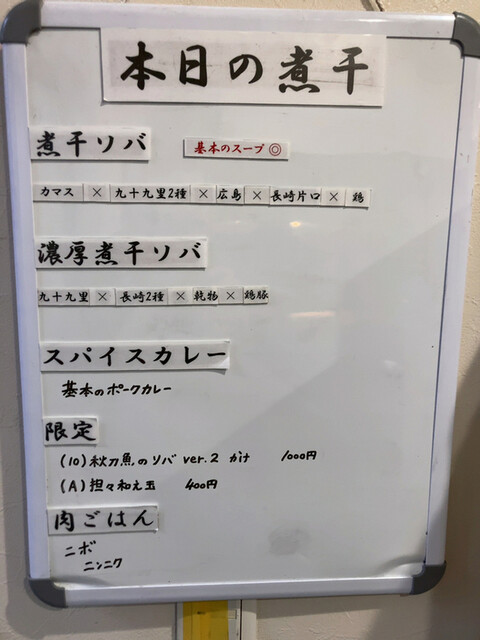 本日の煮干
煮干ソバ 基本のスープ◎
カマス × 九十九里2種 × 広島 × 長崎片口 × 鶏
濃厚煮干ソバ
九十九里 × 長崎2種 × 乾物 × 鶏豚
スパイスカレー
基本のポークカレー
限定
(10) 秋刀魚のソバ ver.2 かけ 1000円
(A) 担々和え玉 400円
肉ごはん
ニボ
ニンニク